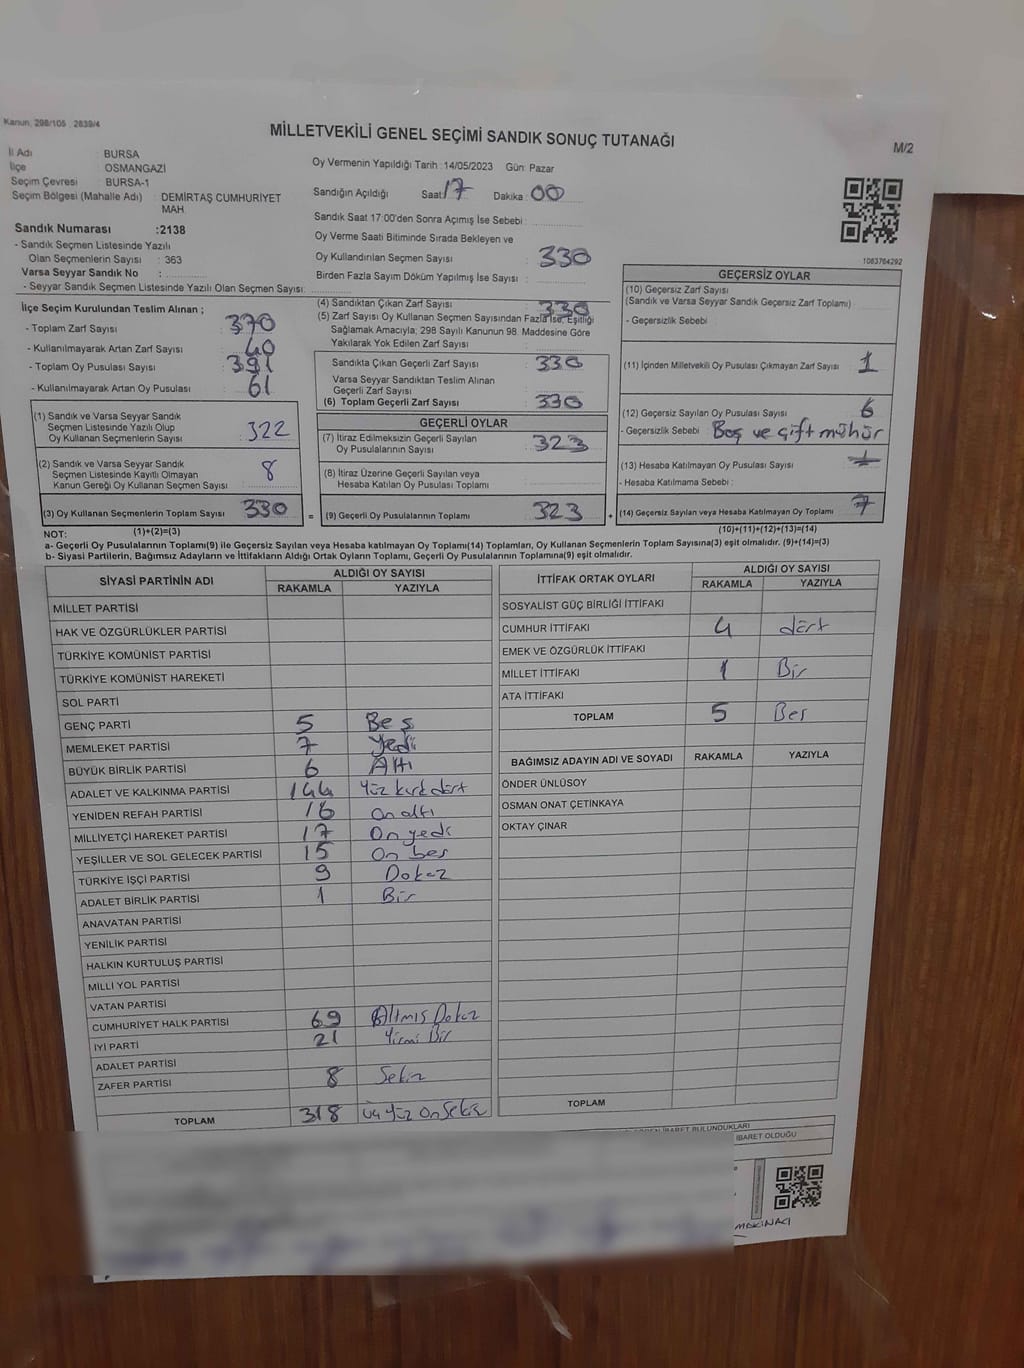 Kanun: 298/105 2839/4
MİLLETVEKİLİ GENEL SEÇİMİ SANDIK SONUÇ TUTANAĞI
M/2
İl Adı : BURSA
İlçe : OSMANGAZİ
Seçim Çevresi : BURSA-1
Seçim Bölgesi (Mahalle Adı) : DEMİRTAŞ CUMHURİYET
MAH.
Sandık Numarası :2138
- Sandık Seçmen Listesinde Yazılı
Olan Seçmenlerin Sayısı : 363
Varsa Seyyar Sandık No :
- Seyyar Sandık Seçmen Listesinde Yazılı Olan Seçmen Sayısı:
Oy Vermenin Yapıldığı Tarih :14/05/2023 Gün: Pazar
Sandığın Açıldığı Saat: 17 Dakika : 00
Sandık Saat 17:00'den Sonra Açımış İse Sebebi :
Oy Verme Saati Bitiminde Sırada Bekleyen ve
Oy Kullandırılan Seçmen Sayısı : 330
Birden Fazla Sayım Döküm Yapılmış İse Sayısı :
1083764292
İlçe Seçim Kurulundan Teslim Alınan ;
- Toplam Zarf Sayısı : 370
- Kullanılmayarak Artan Zarf Sayısı : 40
- Toplam Oy Pusulası Sayısı : 391
- Kullanılmayarak Artan Oy Pusulası : 61
(1) Sandık ve Varsa Seyyar Sandık
Seçmen Listesinde Yazılı Olup
Oy Kullanan Seçmenlerin Sayısı : 322
(2) Sandık ve Varsa Seyyar Sandık
Seçmen Listesinde Kayıtlı Olmayan
Kanun Gereği Oy Kullanan Seçmen Sayısı : 8
(3) Oy Kullanan Seçmenlerin Toplam Sayısı : 330
(4) Sandıktan Çıkan Zarf Sayısı : 330
(5) Zarf Sayısı Oy Kullanan Seçmen Sayısından Fazla İse, Eşitliği
Sağlamak Amacıyla; 298 Sayılı Kanunun 98. Maddesine Göre
Yakılarak Yok Edilen Zarf Sayısı :
Sandıkta Çıkan Geçerli Zarf Sayısı : 330
Varsa Seyyar Sandıktan Teslim Alınan
Geçerli Zarf Sayısı :
(6) Toplam Geçerli Zarf Sayısı : 330
GEÇERLİ OYLAR
(7) İtiraz Edilmeksizin Geçerli Sayılan
Oy Pusulalarının Sayısı : 323
(8) İtiraz Üzerine Geçerli Sayılan veya
Hesaba Katılan Oy Pusulası Toplamı :
= (9) Geçerli Oy Pusulalarının Toplamı : 323 +
GEÇERSİZ OYLAR
(10) Geçersiz Zarf Sayısı
(Sandık ve Varsa Seyyar Sandık Geçersiz Zarf Toplamı)
- Geçersizlik Sebebi :
(11) İçinden Milletvekili Oy Pusulası Çıkmayan Zarf Sayısı : 1
(12) Geçersiz Sayılan Oy Pusulası Sayısı : 6
- Geçersizlik Sebebi : Boş ve çift mühür
(13) Hesaba Katılmayan Oy Pusulası Sayısı :
- Hesaba Katılmama Sebebi :
(14) Geçersiz Sayılan veya Hesaba Katılmayan Oy Toplamı : 7
NOT: (1)+(2)=(3) (10)+(11)+(12)+(13)=(14)
a- Geçerli Oy Pusulalarının Toplamı(9) ile Geçersiz Sayılan veya Hesaba katılmayan Oy Toplamı(14) Toplamları, Oy Kullanan Seçmenlerin Toplam Sayısına(3) eşit olmalıdır. (9)+(14)=(3)
b- Siyasi Partilerin, Bağımsız Adayların ve İttifakların Aldığı Ortak Oyların Toplamı, Geçerli Oy Pusulalarının Toplamına(9) eşit olmalıdır.
SİYASİ PARTİNİN ADI ALDIĞI OY SAYISI
RAKAMLA YAZIYLA
MİLLET PARTİSİ
HAK VE ÖZGÜRLÜKLER PARTİSİ
TÜRKİYE KOMÜNİST PARTİSİ
TÜRKİYE KOMÜNİST HAREKETİ
SOL PARTİ
GENÇ PARTİ 5 Beş
MEMLEKET PARTİSİ 7 Yedi
BÜYÜK BİRLİK PARTİSİ 6 Altı
ADALET VE KALKINMA PARTİSİ 144 Yüz kırk dört
YENİDEN REFAH PARTİSİ 16 On altı
MİLLİYETÇİ HAREKET PARTİSİ 17 On yedi
YEŞİLLER VE SOL GELECEK PARTİSİ 15 On beş
TÜRKİYE İŞÇİ PARTİSİ 9 Dokuz
ADALET BİRLİK PARTİSİ 1 Bir
ANAVATAN PARTİSİ
YENİLİK PARTİSİ
HALKIN KURTULUŞ PARTİSİ
MİLLİ YOL PARTİSİ
VATAN PARTİSİ
CUMHURİYET HALK PARTİSİ 69 Altmış Dokuz
İYİ PARTİ 21 Yirmi Bir
ADALET PARTİSİ
ZAFER PARTİSİ 8 Sekiz
TOPLAM 318 üç Yüz On Sekiz
İTTİFAK ORTAK OYLARI ALDIĞI OY SAYISI
RAKAMLA YAZIYLA
SOSYALİST GÜÇ BİRLİĞİ İTTİFAKI
CUMHUR İTTİFAKI 4 dört
EMEK VE ÖZGÜRLÜK İTTİFAKI
MİLLET İTTİFAKI 1 Bir
ATA İTTİFAKI
TOPLAM 5 Beş
BAĞIMSIZ ADAYIN ADI VE SOYADI RAKAMLA YAZIYLA
ÖNDER ÜNLÜSOY
OSMAN ONAT ÇETİNKAYA
OKTAY ÇINAR
TOPLAM
İBARET BULUNDUKLARI
İBARET OLDUĞU